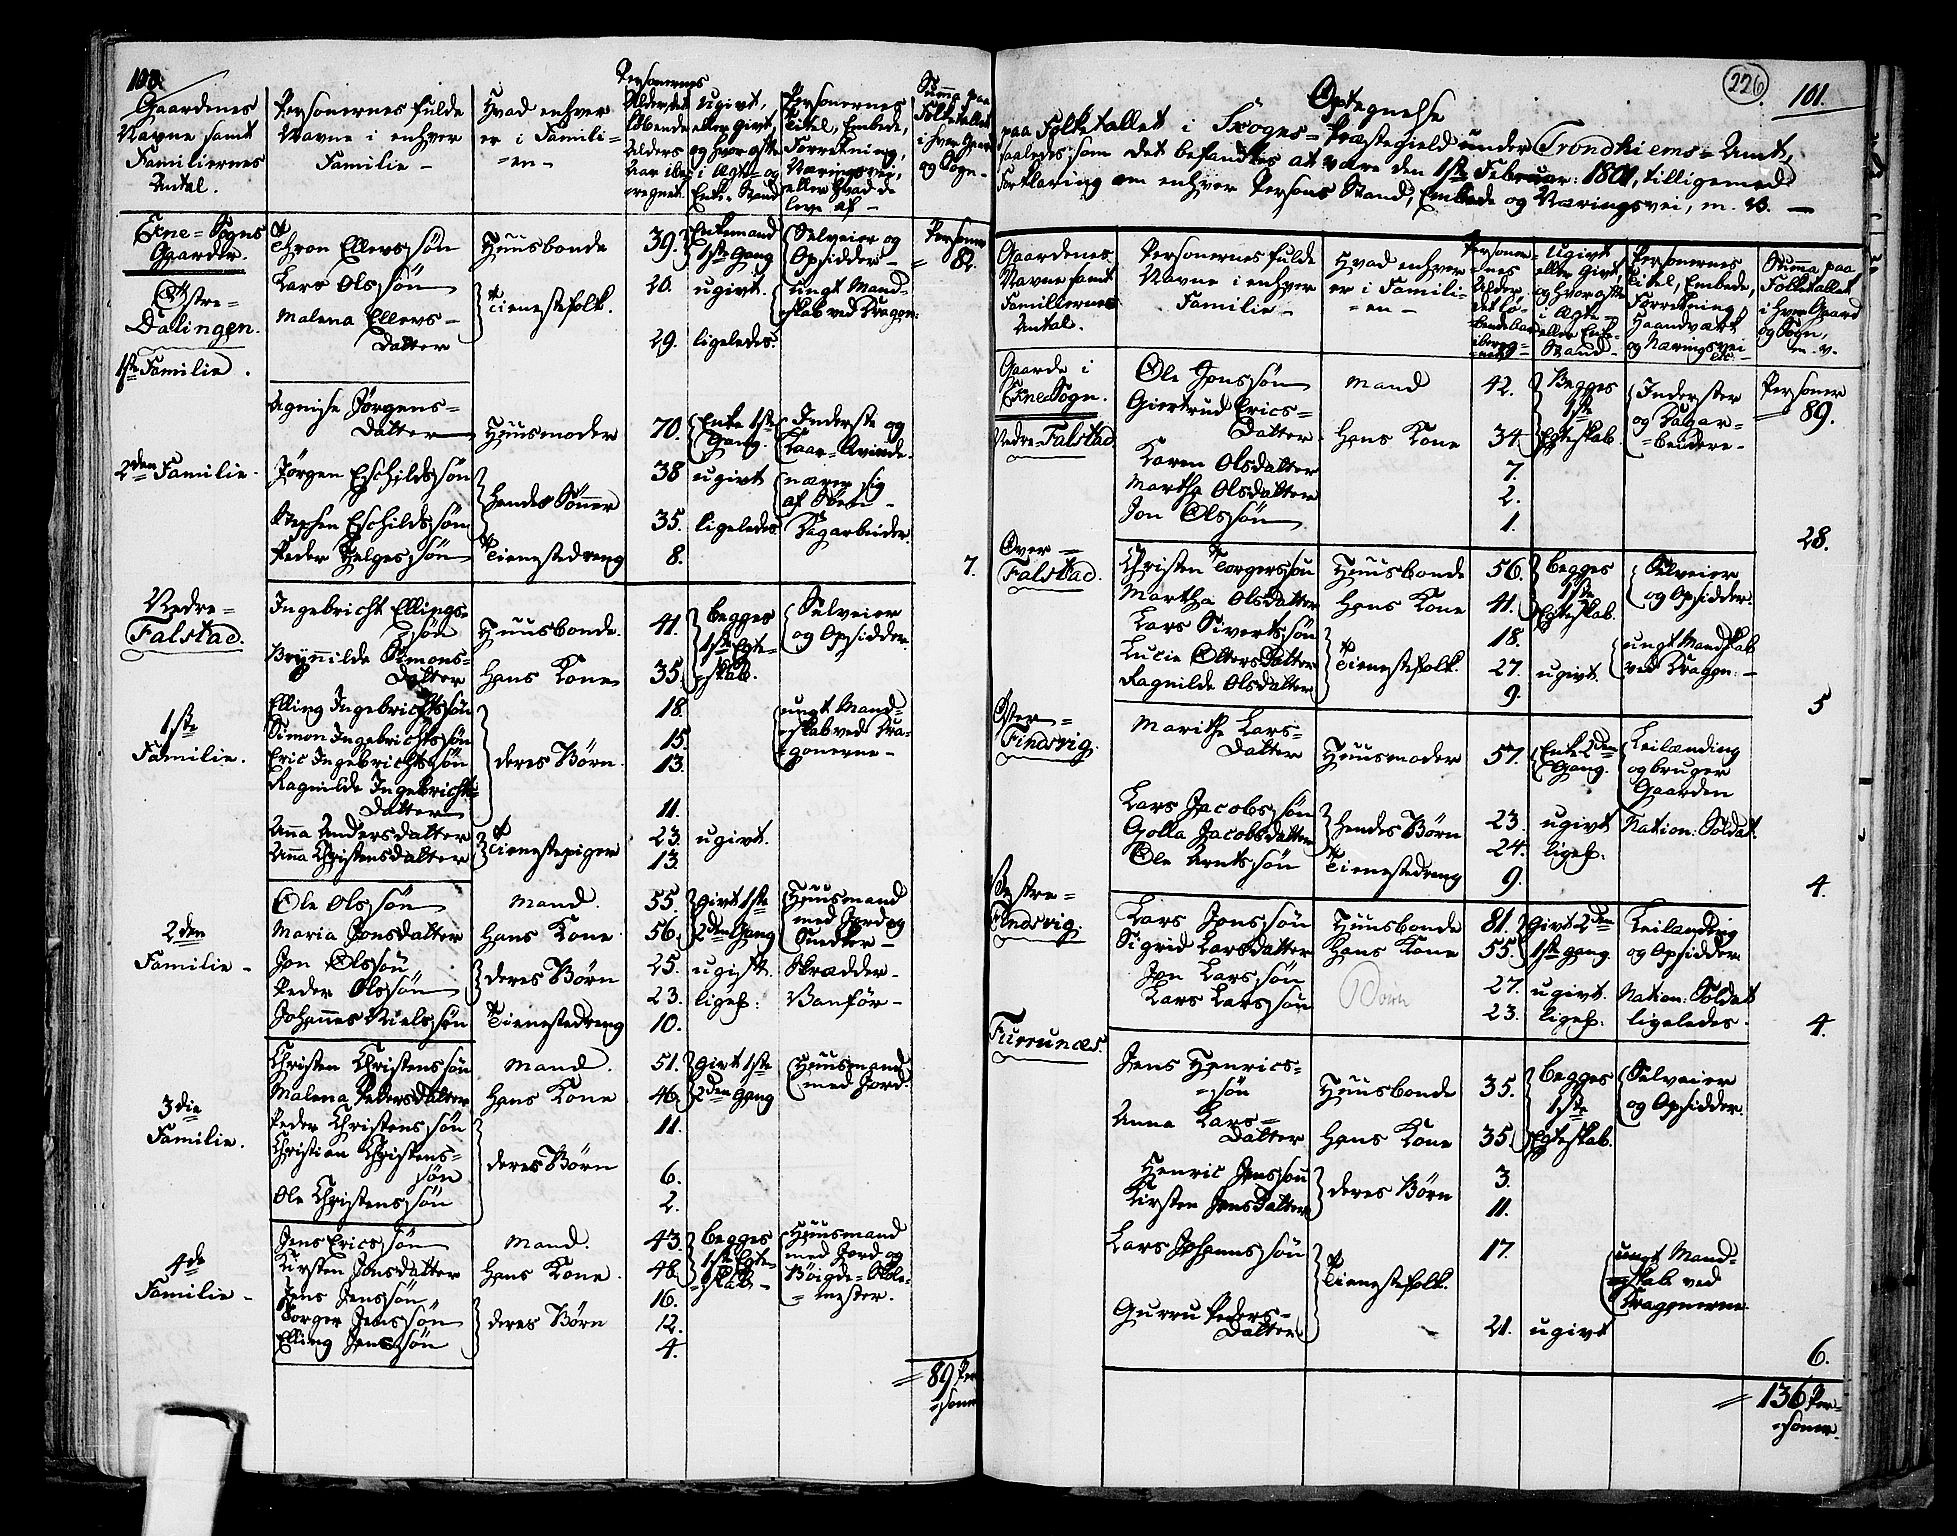 100.
Gaardenes Navne samt Familiernes Antal.
Personernes fulde Navne i enhver Familie -
Hvad enhver er i Famili-en-
Personernes Alder, det løbende Alders Aar iberegnet.
ugivt, eller givt, og hvor ofte i Ægte- og Enke-Stand
Personernes Titel, Embede, Forretning, Næringsvei, eller hvad de leve af -
Summa paa Folketallet i hver Gaard og Sogn -
Ekne-Sogns Gaarder.
Personer = 82.
Østre-Dalingen.
1ste Familie.
Thron Ellevssøn Huusbonde 39. Enkemand 1ste Gang Selveier og Opsidder -
Lars Olssøn Tienestefolk. 20. ugivt. ungt Mandskab ved Dragon:
Malena Ellevs-Datter 29. ligeledes.
2den Familie.
Agnise Jørgens-Datter Huusmoder 70. Enke 1ste Gang. Inderste og Kaar-Qvinde.
Jørgen Eschildssøn Hendes Sønner 38 ugivt nærer sig af
Stephen Eschildssøn 35. ligeledes Dagarbeider.
Peder Helgessøn Tienestedreng 8.
7.
Nedre-Falstad.
1ste Familie.
Ingebricht Ellings-søn Huusbonde. 41. begges 1ste Egte-skab. Selveier og Opsidder.
Brynnilde Simons-Datter Hans Kone 35.
Elling Ingebrichtssøn deres Børn 18. ungt Mandskab ved Dragonerne -
Simon Ingebrichtssøn 15.
Eric Ingebrichtssøn 13.
Ragnilde Ingebrichts-Datter 11.
Anna Andersdatter Tienestepiger 23. ugivt.
Anna Christensdatter 13.
2den Familie -
Ole Olssøn Mand. 55. givt 1ste Huusmand med Jord og Snedker -
Maria Jonsdatter Hans Kone 56. 2den Gang
Jon Olssøn deres Børn 25. ugift. Skrædder -
Peder Olssøn 23. ligel: Vanfør -
Johannes Nielssøn Tienestedreng 10.
3die Familie.
Christen Christenssøn Mand. 51. givt 1ste Huusmand med Jord.
Malena Pedersdatter Hans Kone 46. 2den Gang
Peder Christenssøn deres Børn 11.
Christian Christens-søn 6.
Ole Christenssøn 2.
4de Familie -
Jens Ericssøn Mand. 43. begges 1ste Egte-skab - Huusmand med Jord og Bøigde-Skole-mester.
Kirsten Jonsdatter Hans Kone. 48.
Jens Jenssøn deres Børn 16.
Torger Jenssøn 12.
Elling Jenssøn 4.
= 89 Per-soner
226
101.
Optegnelse
paa Folketallet i Skognes-Præstegield under Trondhiems-Amt,
saaledes som det befandtes at være den 1ste Februar: 1801, tilligemed
Forklaring om enhver Persons Stand, Embede og Næringsvei, m. v. -
Gaardenes Navne samt Familiernes Antal.
Personernes fulde Navne i enhver Familie -
Hvad enhver er i Famili-en -
Personernes Alder det løbende Aar iberegnet
Ugivt eller givt, og hvor ofte i Ægte- eller Enke-Stand -
Personernes Titel, Embede, Forretning, Haandværk og Næringsvei etc.
Summa paa Folketallet i hver Gaard og Sogn, m. v.
Gaarde i Ekne Sogn.
Nedre-Falstad
Personer = 89.
Ole Jonssøn Mand 42. Begges 1ste Egteskab. Inderster og Dagar-beidere -
Giertrud Erics-Datter Hans Kone 34.
Karen Olsdatter 7.
Martha Olsdatter 2.
Jon Olssøn 1.
28.
Over-Falstad.
Christen Torgerssøn Huusbonde 56. begges 1ste Egteskab. Selveier og Opsidder.
Martha Olsdatter Hans Kone 41.
Lars Sivertssøn Tienestefolk. 18. ungt Mandskab ved Dragon: -
Lucie Oltersdatter 27. ugivt.
Ragnilde Olsdatter 9.
5
Findsvig.
Marithe Lars-Datter Huusmoder 57. Enke 2den Gang. Leilænding og bruger Gaarden
Lars Jacobssøn Hendes Børn 23. ugivt Nation: Soldat.
Golla Jacobsdatter 24. ligel:
Ole Arntssøn Tienestedreng 9.
4.
Vestre-Findsvig.
Lars Jonssøn Huusbonde 81. givt 2den Leilænding og Opsidder
Sigrid Larsdatter Hans Kone 55. 1ste gang
Jon Larssøn Børn 27. ugivt. Nation: Soldat
Lars Larssøn 23. ligel: ligeledes.
4.
Furrunæs.
Jens Henrics-søn Huusbonde 35. begges 1ste Egteskab. Selveier og Opsidder.
Anna Lars-Datter Hans Kone 35.
Henric Jenssøn deres Børn 3.
Kirsten Jensdatter 11.
Lars Johannssøn Tienestefolk. 17. ungt Mand-skab ved Dragonerne
Gurru Peders-Datter 21. ugivt
6.
= 136 Per-soner.